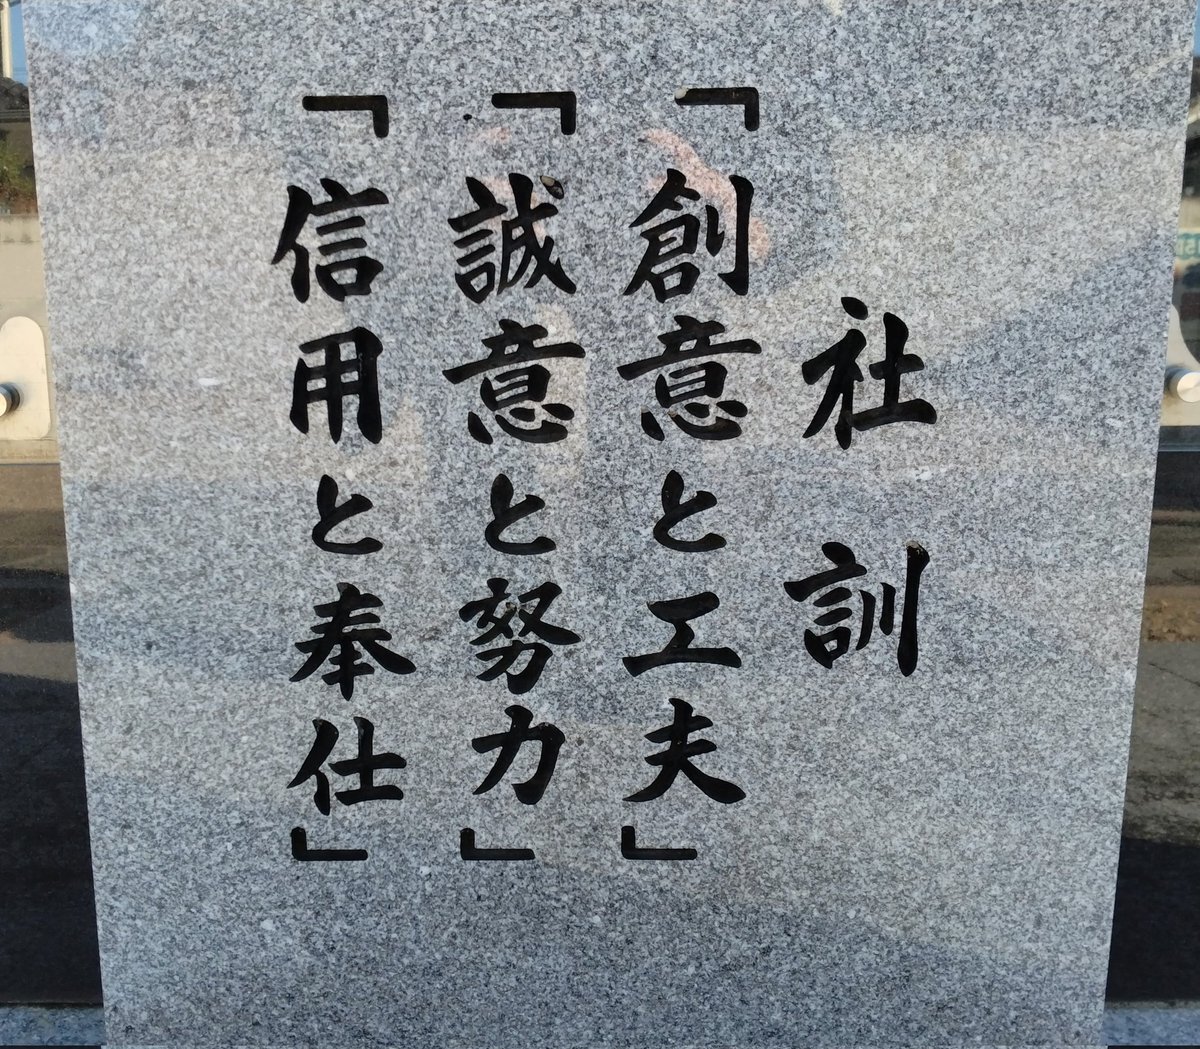 社訓
「創意と工夫」
「誠意と努力」
「信用と奉仕」